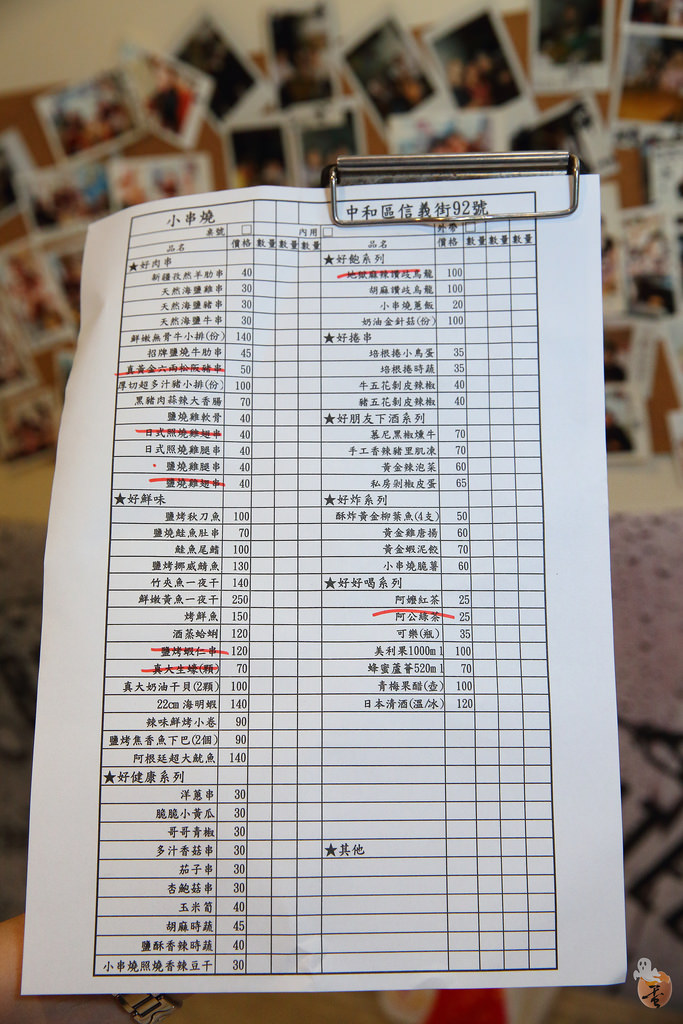 小串燒
中和區信義街92號
桌號□ 內用□ 外帶□
品名 價格 數量 數量 數量
★好肉串
新疆孜然羊肋串 40
天然海鹽雞串 30
天然海鹽豬串 30
天然海鹽牛串 30
鮮嫩無骨牛小排(份) 140
招牌鹽燒牛肋串 45
真黃金六兩松阪豬串 50
厚切超多汁豬小排(份) 100
黑豬肉蒜辣大香腸 70
鹽燒雞軟骨 40
日式照燒雞翅串 40
日式照燒雞腿串 40
鹽燒雞腿串 40
鹽燒雞翅串 40
★好鮮味
鹽烤秋刀魚 100
鹽燒鮭魚肚串 70
鮭魚尾鰭 100
鹽烤挪威鯖魚 130
竹夾魚一夜干 140
鮮嫩黃魚一夜干 250
烤鮮魚 150
酒蒸蛤蜊 120
鹽烤蝦仁串 120
真大生蠔(顆) 70
真大奶油干貝(2顆) 100
22cm 海明蝦 140
辣味鮮烤小卷 90
鹽烤焦香魚下巴(2個) 90
阿根廷超大魷魚 140
★好健康系列
洋蔥串 30
脆脆小黃瓜 30
哥哥青椒 30
多汁香菇串 30
茄子串 30
杏鮑菇串 30
玉米筍 40
胡麻時蔬 45
鹽酥香辣時蔬 40
小串燒照燒香辣豆干 30
品名 價格 數量 數量 數量
★好飽系列
地獄麻辣讚歧烏龍 100
胡麻讚歧烏龍 100
小串燒蔥飯 20
奶油金針菇(份) 100
★好捲串
培根捲小鳥蛋 35
培根捲時蔬 35
牛五花剝皮辣椒 40
豬五花剝皮辣椒 40
★好朋友下酒系列
慕尼黑椒燻牛 70
手工香辣豬里肌凍 70
黃金辣泡菜 60
私房剁椒皮蛋 65
★好炸系列
酥炸黃金柳葉魚(4支) 50
黃金雞唐揚 60
黃金蝦泥餃 70
小串燒脆薯 60
★好好喝系列
阿嬤紅茶 25
阿公綠茶 25
可樂(瓶) 35
美利果1000ml 100
蜂蜜蘆薈520ml 70
青梅果醋(壺) 100
日本清酒(溫/冰) 120
★其他